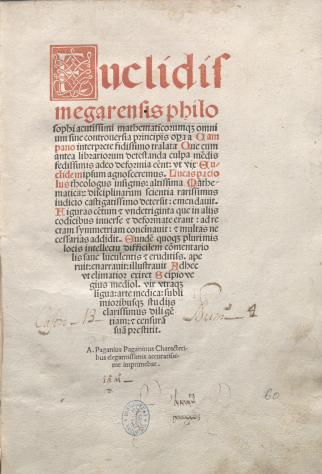 Euclidis
megarensis philo
sophi acutissimi mathematicorumqȝ omni
um sine controversia principis opa a Cam
pano interprete fidissimo tralata Que cum
antea librariorum detestanda culpa mēdis
fedissimis adeo deformia eēnt: vt vix Eu
clidem ipsum agnosceremus. Lucas pacio
lus theologus insignis: altissima Mathe
maticaꝝ disciplinarum scientia rarissimus
iudicio castigatissimo detersit: emendauit.
Figuras cētum & vndetriginta que in alijs
codicibus inuerse & deformate erant: ad re
ctam symmetriam concinauit: & multas ne
cessarias addidit. Eundē quoqȝ plurimis
locis intellectu difficilem cōmentario
lis sane luculentis & eruditiss. ape
ruit: enarrauit: illustrauit Adhec
vt elimatior exiret Scipio ve
gius mediol. vir vtraqȝ
lingua: arte medica: subli
mioribusqȝ studijs
clarissimus diligē
tiam: & censurā
suā prestitit.
Cajon 13
Num 4
A. Paganius Paganinus Characteri
bus elegantissimis accuratissi
me imprimebat.
60